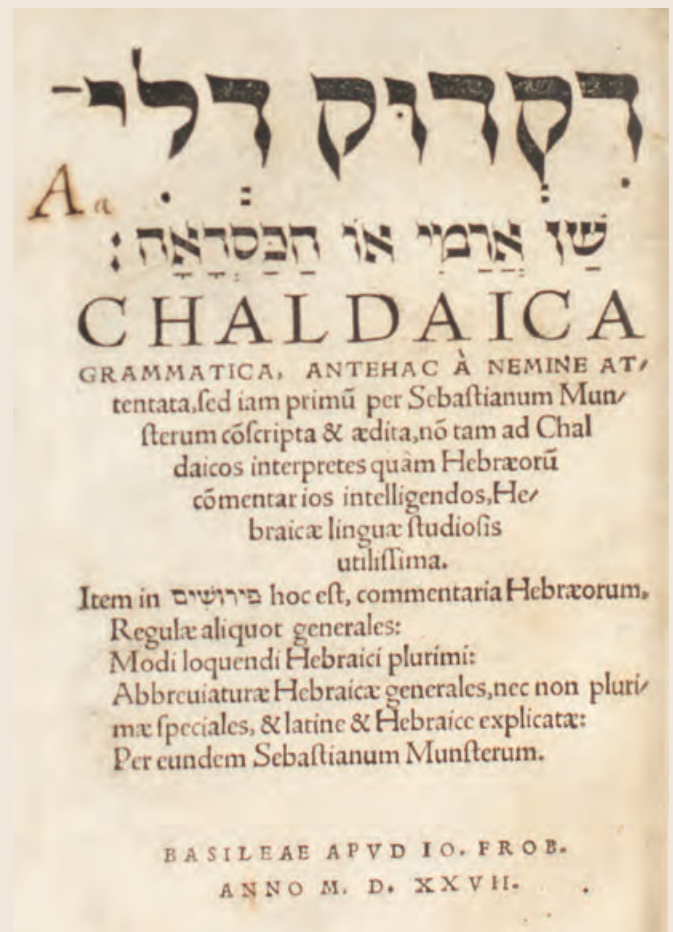 דִקְדוּק דְלִי-
A a
שַׁן אֲרַמִי אוֹ הַכַּסְדָאָה:
CHALDAICA
GRAMMATICA, ANTEHAC À NEMINE AT/
tentata,ſed iam primũ per Sebaſtianum Mun/
ſterum cõſcripta & ædita,nõ tam ad Chal
daicos interpretes quàm Hebræorũ
cõmentarios intelligendos,He/
braicæ linguæ ſtudioſis
utiliſſima.
Item in פירושים hoc eſt, commentaria Hebræorum,
Regulæ aliquot generales:
Modi loquendi Hebraici plurimi:
Abbreuiaturæ Hebraicæ generales,nec non pluri/
mæ ſpeciales, & latine & Hebraice explicatæ:
Per eundem Sebaſtianum Munſterum.
BASILEAE APVD IO. FROB.
ANNO M. D. XXVII.